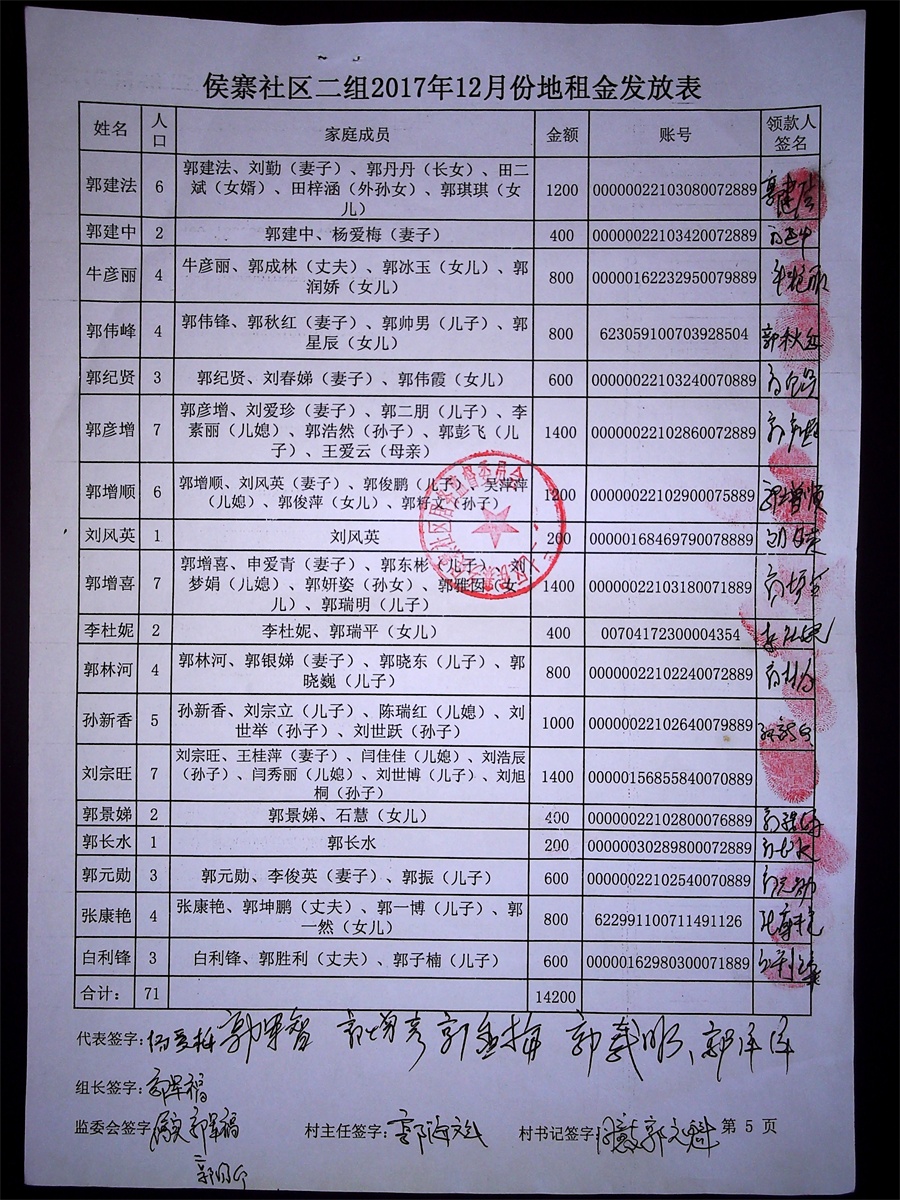 侯寨社区二组2017年12月份地租金发放表
姓名 人口 家庭成员 金额 账号 领款人签名
郭建法 6 郭建法、刘勤（妻子）、郭丹丹（长女）、田二
斌（女婿）、田梓涵（外孙女）、郭琪琪（女
儿） 1200 00000022103080072889 郭建法
郭建中 2 郭建中、杨爱梅（妻子） 400 00000022103420072889 郭建中
牛彦丽 4 牛彦丽、郭成林（丈夫）、郭冰玉（女儿）、郭
润娇（女儿） 800 00000162232950079889 牛艳丽
郭伟峰 4 郭伟锋、郭秋红（妻子）、郭帅男（儿子）、郭
星辰（女儿） 800 6230591007039 28504 郭秋红
郭纪贤 3 郭纪贤、刘春娣（妻子）、郭伟霞（女儿） 600 00000022103240070889
郭彦增 7 郭彦增、刘爱珍（妻子）、郭二朋（儿子）、李
素丽（儿媳）、郭浩然（孙子）、郭彭飞（儿
子）、王爱云（母亲） 1400 00000022102860072889
郭增顺 6 郭增顺、刘风英（妻子）、郭俊鹏（儿子）、吴萍萍
（儿媳）、郭俊萍（女儿）、郭籽文（孙子） 1200 00000022102900075889 郭增顺
刘风英 1 刘风英 200 00000168469790078889
郭增喜 7 郭增喜、申爱青（妻子）、郭东彬（儿子）、刘
梦娟（儿媳）、郭妍姿（孙女）、郭雅囡（女
儿）、郭瑞明（儿子） 1400 00000022103180071889 郭增喜
李杜妮 2 李杜妮、郭瑞平（女儿） 400 00704172300004354 李杜妮
郭林河 4 郭林河、郭银娣（妻子）、郭晓东（儿子）、郭
晓巍（儿子） 800 00000022102240072889 郭林河
孙新香 5 孙新香、刘宗立（儿子）、陈瑞红（儿媳）、刘
世举（孙子）、刘世跃（孙子） 1000 00000022102640079889 孙新香
刘宗旺 7 刘宗旺、王桂萍（妻子）、闫佳佳（儿媳）、刘浩辰
（孙子）、闫秀丽（儿媳）、刘世博（儿子）、刘旭
桐（孙子） 1400 00000156855840070889
郭景娣 2 郭景娣、石慧（女儿） 400 00000022102800076889 郭景娣
郭长水 1 郭长水 200 00000030289800072889 郭长水
郭元勋 3 郭元勋、李俊英（妻子）、郭振（儿子） 600 00000022102540070889 郭元勋
张康艳 4 张康艳、郭坤鹏（丈夫）、郭一博（儿子）、郭
一然（女儿） 800 622991100711491126 张康艳
白利锋 3 白利锋、郭胜利（丈夫）、郭子楠（儿子） 600 00000162980300071889 白利锋
合计： 71 14200
代表签字: 郭军智 郭增彦
组长签字: 郭军福
监委会签字: 郭军福 村主任签字: 郭海斌 村书记签字: 郭文魁 第 5 页